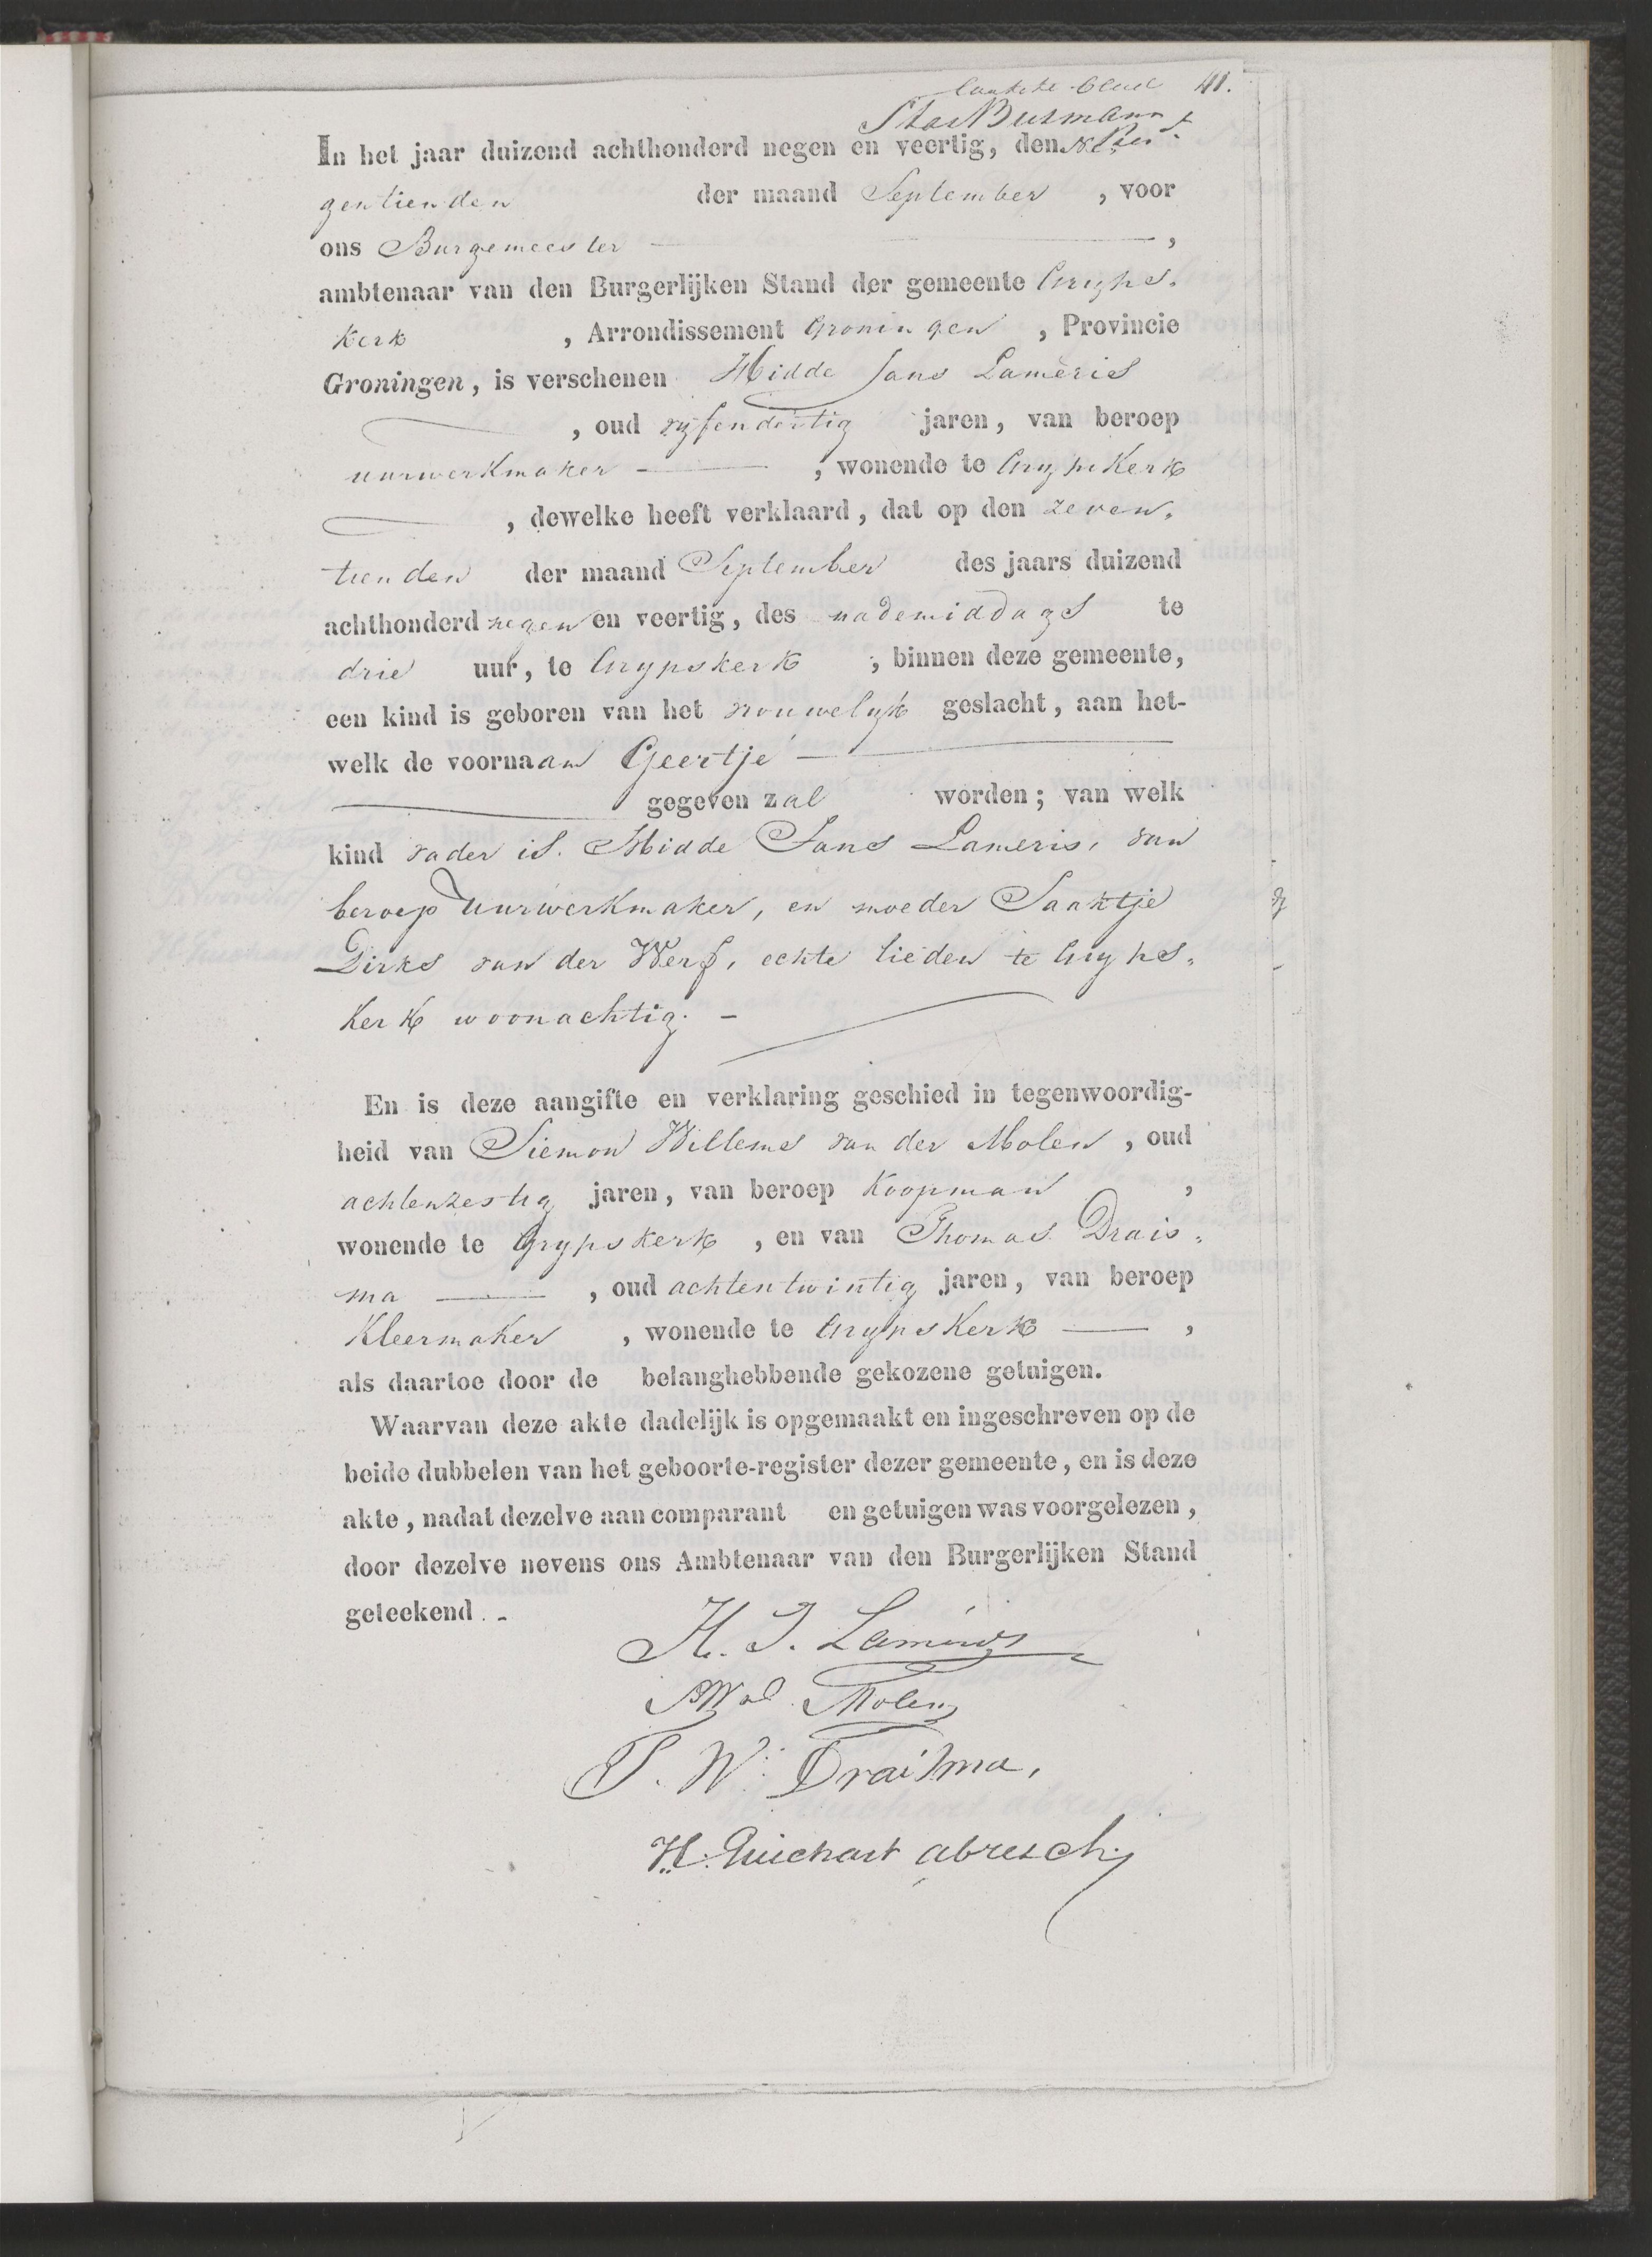 laatste blad 41.
Star Busmann
In het jaar duizend achthonderd negen en veertig, den ne
gentienden der maand September , voor
ons Burgemeester ,
ambtenaar van den Burgerlijken Stand der gemeente Gryps.
kerk , Arrondissement Groningen , Provincie
Groningen, is verschenen Hidde Jans Lameris
, oud vyfendertig jaren, van beroep
uurwerkmaker , wonende te Grypskerk
, dewelke heeft verklaard, dat op den zeven.
tienden der maand September des jaars duizend
achthonderd negen en veertig, des nademiddags te
drie uur, te Grypskerk , binnen deze gemeente,
een kind is geboren van het vrouwelyk geslacht, aan het-
welk de voornaam Geertje
gegeven zal worden; van welk
kind vader is. Hidde Jans Lameris, van
beroep uurwerkmaker, en moeder Saaktje
Dirks van der Werf, echte lieden te Gryps.
kerk woonachtig. -
En is deze aangifte en verklaring geschied in tegenwoordig-
heid van Siemon Willems van der Molen , oud
achtenzestig jaren, van beroep Koopman ,
wonende te Grypskerk , en van Thomas Drais.
ma , oud achtentwintig jaren, van beroep
Kleermaker , wonende te Grypskerk ,
als daartoe door de belanghebbende gekozene getuigen.
Waarvan deze akte dadelijk is opgemaakt en ingeschreven op de
beide dubbelen van het geboorte-register dezer gemeente, en is deze
akte, nadat dezelve aan comparant en getuigen was voorgelezen,
door dezelve nevens ons Ambtenaar van den Burgerlijken Stand
geteekend. -
H. J. Lameris
SWvd Molen
T. W. Draisma,
H. Guichart abresch